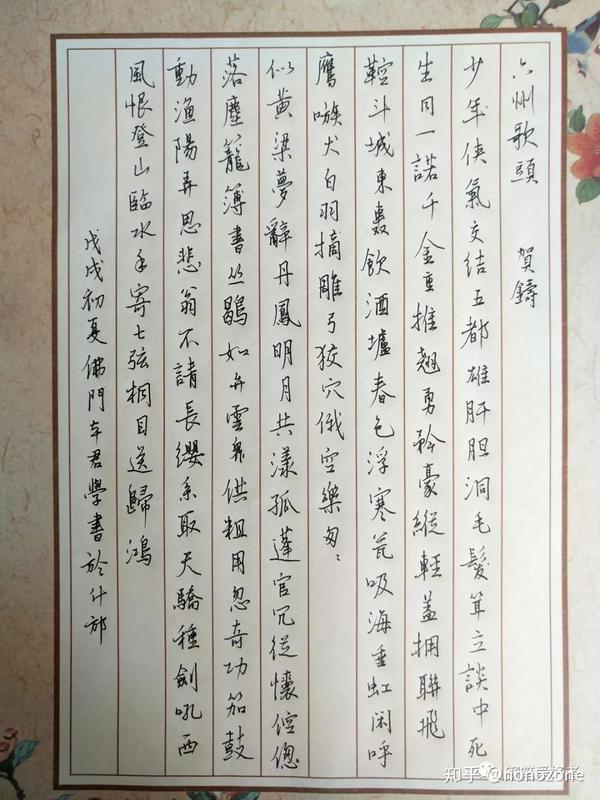 六州歌頭 賀鑄
少年俠氣交結五都雄肝胆洞毛髮耸立談中死
生同一諾千金重推翹勇矜豪縱輕盖拥聯飛
鞚斗城東轟飲酒壚春色浮寒瓮吸海垂虹闲呼
鷹嗾犬白羽摘雕弓狡穴俄空樂匆〻
似黄梁夢辭丹鳳明月共漾孤蓬官冗從懷倥傯
落塵籠簿書丛鶡如弁雲衆供粗用忽奇功笳鼓
動漁陽弄思悲翁不請長纓系取天驕種劍吼西
風恨登山臨水手寄七弦桐目送歸鴻
戊戌初夏佛門车君學書於什邡
知乎 @nonozone